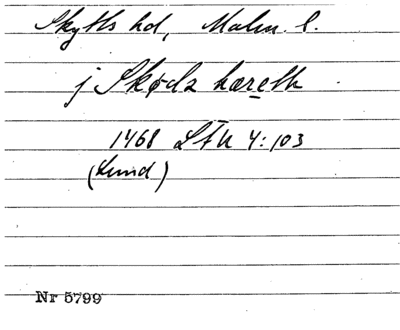 Skytts hd, Malm. l.
j Skødz hæreth
1468 LÄU 4:103
(Lund)
Nr 5799